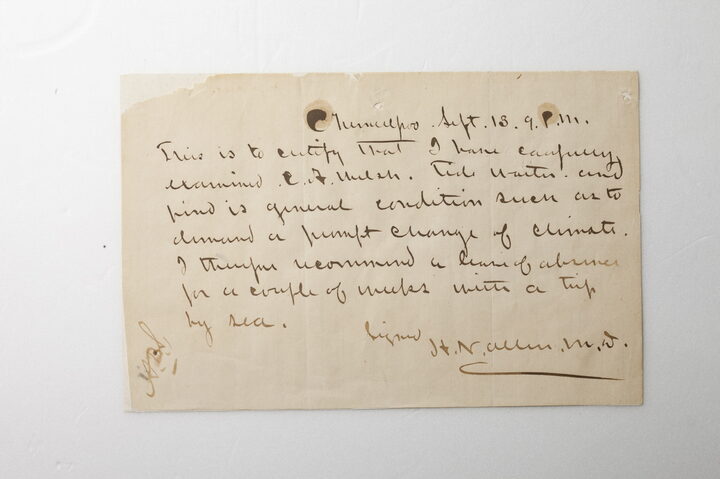 Chemulpoo. Sept. 13. 9. P.M.
This is to certify that I have carefully
examined C. F. Welsh. Tide Waiter. and
find is general condition such as to
demand a prompt change of climate.
I therefore recommend a leave of absence
for a couple of weeks with a trip
by sea.
Signed
H. N. Allen. M.D.